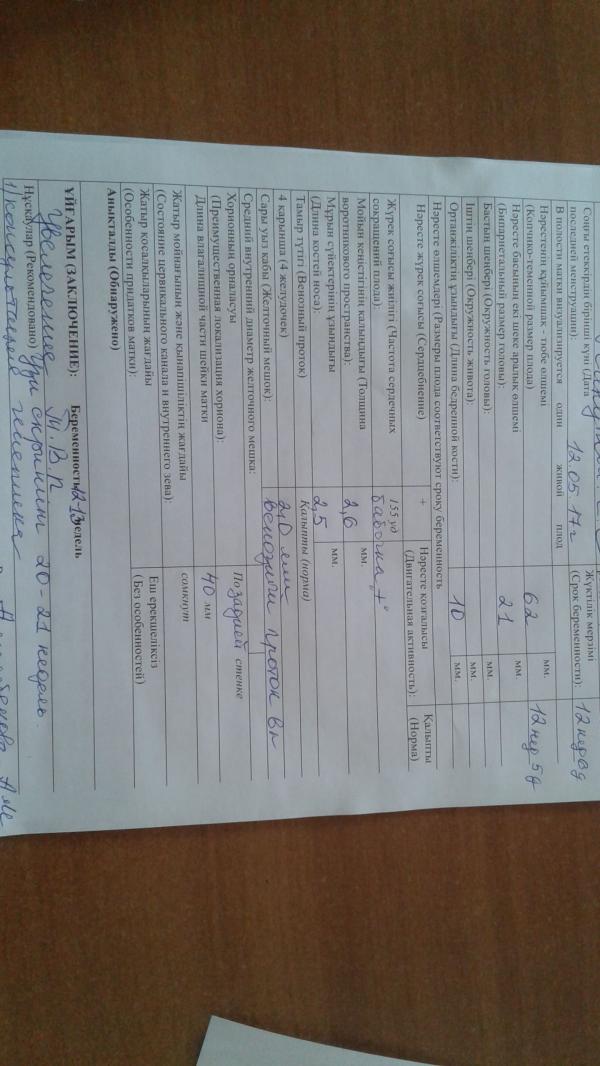 Соңғы етеккірдің бірінші күні (Дата последней менструации): 12.05.17 г Жүктілік мерзімі (Срок беременности): 12 нед 6д
В полости матки визуализируется один живой плод
Нәрестенің құйымшақ - төбе өлшемі (Копчико-теменной размер плода) 62 мм. 12 нед 5д
Нәресте басының екі шеке аралық өлшемі (Бипариетальный размер головы): 21 мм.
Бастың шеңбері (Окружность головы): мм.
Іштің шеңбері (Окружность живота): мм.
Ортанжіліктің ұзындығы (Длина бедренной кости): 10 мм.
Нәресте өлшемдері (Размеры плода соответствуют сроку беременность
Нәресте жүрек соғысы (Сердцебиение) + Нәресте қозғалысы (Двигательная активность): Қалыпты (Норма)
Жүрек соғысы жиілігі (Частота сердечных сокращений плода): 155 уд бабочка +
Мойын кеңістігінің қалыңдығы (Толщина воротникового пространства): 2,6 мм.
Мұрын сүйектерінің ұзындығы (Длина костей носа): 2,5 мм.
Тамыр түтігі (Венозный проток) Қалыпты (норма)
4 қарынша (4 желудочек) 2,0 мм
Сары уыз қабы (Желточный мешок): венозный проток вн
Средний внутренний диаметр желточного мешка:
Хорионның орналасуы (Преимущественная локализация хориона): По задней стенке
Длина влагалищной части шейки матки 40 мм
Жатыр мойнағының және қынапішіліктің жағдайы (Состояние цервикального канала и внутреннего зева): сомкнут
Жатыр қосалқыларының жағдайы (Особенности придатков матки): Еш ерекшеліксіз (Без особенностей)
Анықталды (Обнаружено)
ҰЙҒАРЫМ (ЗАКЛЮЧЕНИЕ): Беременность 12 недель
Увеличение Т.В.П.
Нұсқаулар (Рекомендовано) Узи скрининг 20-21 недель.
1) консультация